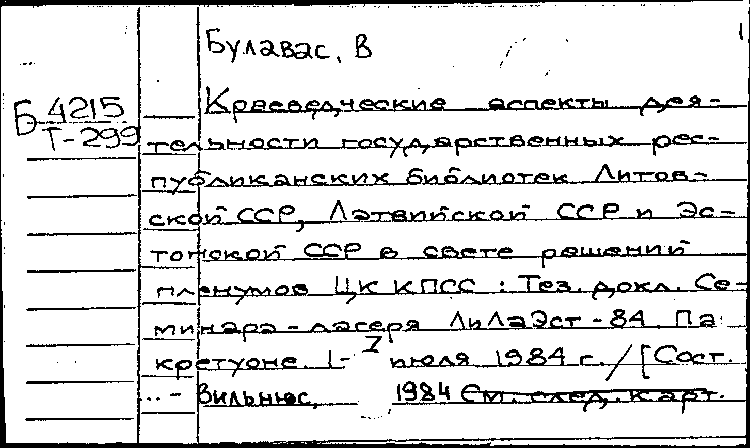 Булавас, В
Б 4215
Т-299
Краеведческие аспекты дея-
тельности государственных рес-
публиканских библиотек Литов-
ской ССР, Латвийской ССР и Эс-
тонской ССР в свете решений
пленумов ЦК КПСС : Тез. докл. Се-
минара-лагеря ЛиЛаЭст-84. Па
кретуоне. 1-7 июля 1984 г. / [Сост.
..- Вильнюс, 1984 См. след. карт.